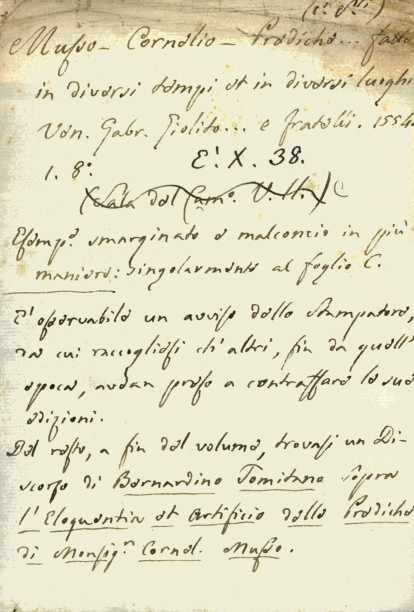 (c. 8vi)
Musso - Cornelio - Prediche... fatte
in diversi tempi et in diversi luoghi
Ven. Gabr. Giolito... e fratelli. 1554.
1. 8°. E'. X. 38.
(Sala del Cam°. V. H.)
Esemp.e smarginato e malconcio in più
maniere: singolarmente al foglio C.
E' osservabile un avviso dello Stampatore,
da cui raccogliesi ch'altri, fin da quell'
epoca, avean preso a contraffare le sue
edizioni.
Del resto, a fin del volume, trovasi un Di-
scorso di Bernardino Tomitano sopra
l'Eloquentia et Artificio delle Prediche
di Monsig.r Cornel. Musso.